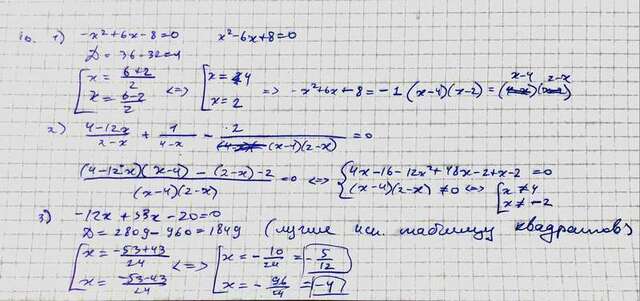 10. 1) -x²+6x-8=0 x²-6x+8=0
D = 36-32=4
[x = (6+2)/2 x = (6-2)/2 <=> [x = 4 x = 2 => -x²+6x-8 = -1 (x-4)(x-2) = (x-4)(2-x)
2) (4-12x)/(2-x) + 1/(4-x) - 2/((x-4)(2-x)) = 0
((4-12x)(x-4) - (2-x) - 2)/((x-4)(2-x)) = 0 <=> {4x-16-12x²+48x-2+x-2 = 0 (x-4)(2-x) ≠ 0 <=> [x ≠ 4 x ≠ -2
3) -12x + 53x - 20 = 0
D = 2809 - 960 = 1849 (лучше исп. таблицу квадратов)
[x = (-53+43)/24 x = (-53-43)/24 <=> [x = -10/24 = -5/12 x = -96/24 = -4